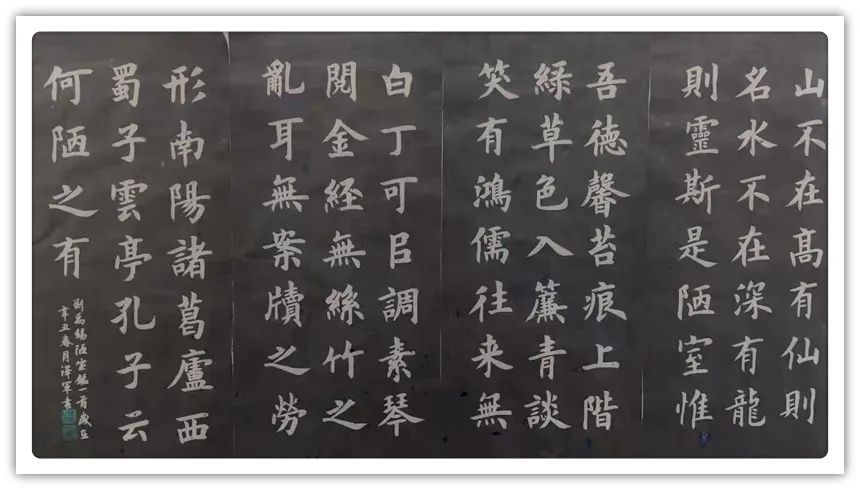 山不在髙有仙則
名水不在深有龍
則靈斯是陋室惟
吾德馨苔痕上階
緑草色入簾青談
笑有鴻儒往来無
白丁可㠯調素琴
閲金経無絲竹之
亂耳無案牘之勞
形南陽諸葛廬西
蜀子雲亭孔子云
何陋之有
劉禹錫陋室銘一首歲在
辛丑春月澤軍書